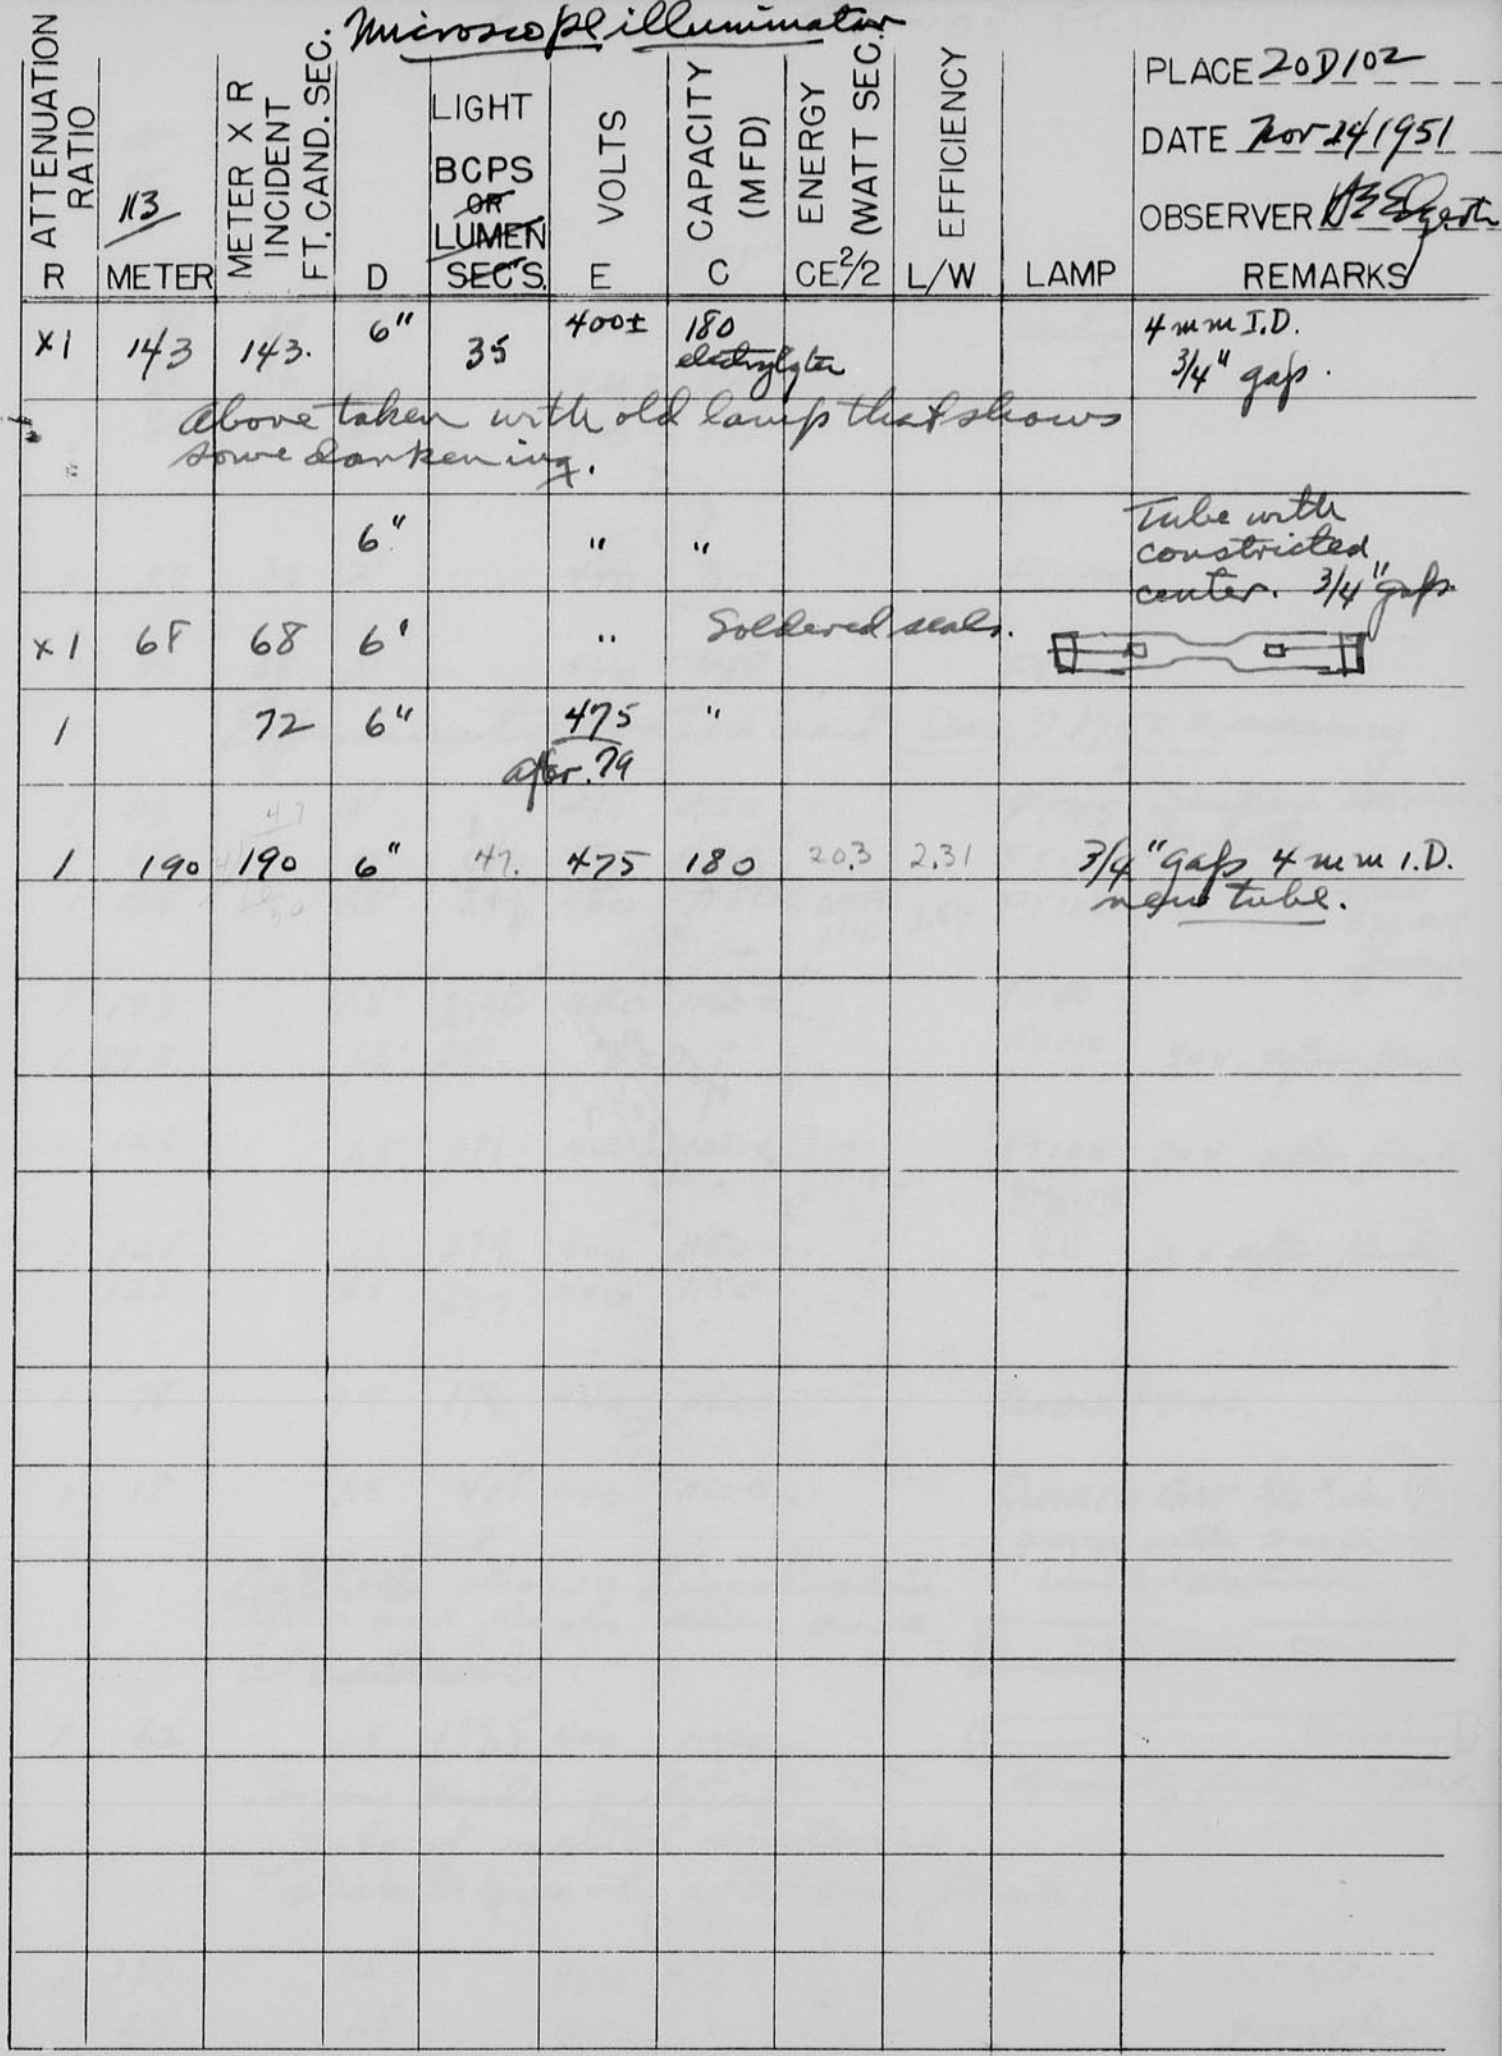 Microscope illuminator
PLACE 20D102
DATE Nov 24 1951
OBSERVER H E Edgerton
ATTENUATION RATIO R
113 METER
METER X R INCIDENT FT. CAND. SEC.
D
LIGHT BCPS OR LUMEN SEC'S.
VOLTS E
CAPACITY (MFD) C
ENERGY (WATT SEC.) CE²/2
EFFICIENCY L/W
LAMP
REMARKS
x1 143 143. 6" 35 400± 180 4 mm I.D.
3/4" gap.
Above taken with old lamp that shows
some darkening.
6" " " Tube with
constricted
center. 3/4" gap
x1 68 68 6' " Soldered seals.
1 72 6" 475 "
after. 79
47
1 190 190 6" 47. 475 180 20.3 2.31 3/4" gap 4 mm I.D.
new tube.